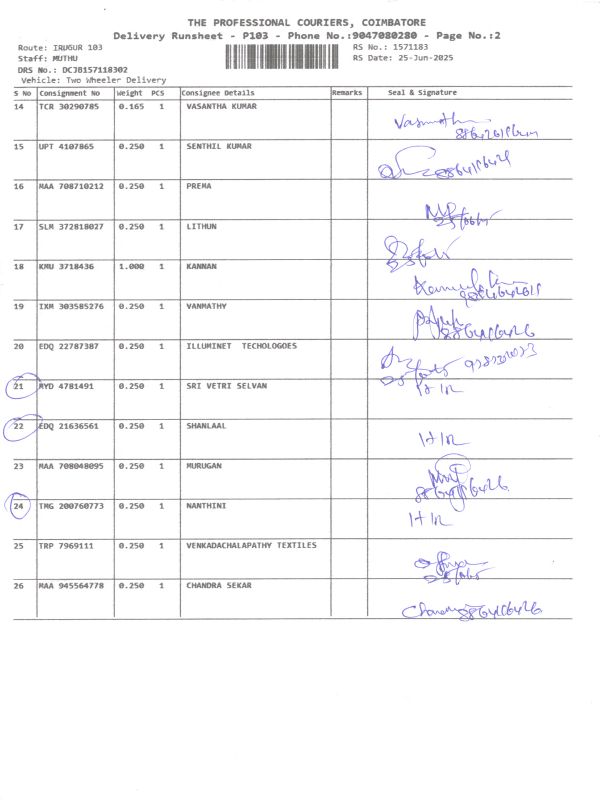 THE PROFESSIONAL COURIERS, COIMBATORE
Delivery Runsheet - P103 - Phone No.:9047080280 - Page No.:2
Route: IRUGUR 103 RS No.: 1571183
Staff: MUTHU RS Date: 25-Jun-2025
DRS No.: DCJB157118302
Vehicle: Two Wheeler Delivery
S No Consignment No Weight PCS Consignee Details Remarks Seal & Signature
14 TCR 30290785 0.165 1 VASANTHA KUMAR
15 UPT 4107865 0.250 1 SENTHIL KUMAR
16 MAA 708710212 0.250 1 PREMA
17 SLM 372818027 0.250 1 LITHUN
18 KMU 3718436 1.000 1 KANNAN
19 IXM 303585276 0.250 1 VANMATHY
20 EDQ 22787387 0.250 1 ILLUMINET TECHOLOGOES
21 RYD 4781491 0.250 1 SRI VETRI SELVAN
22 EDQ 21636561 0.250 1 SHANLAAL
23 MAA 708048095 0.250 1 MURUGAN
24 TMG 200760773 0.250 1 NANTHINI
25 TRP 7969111 0.250 1 VENKADACHALAPATHY TEXTILES
26 MAA 945564778 0.250 1 CHANDRA SEKAR